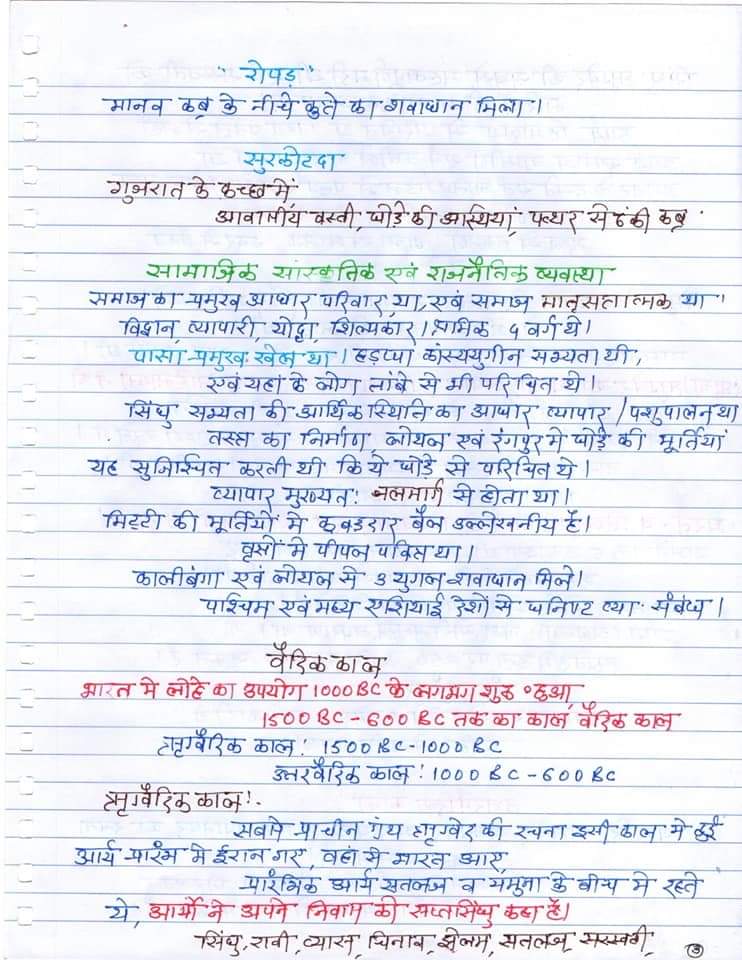 "रोपड़"
मानव कब्र के नीचे कुत्ते का शवाधान मिला।
सुरकोटदा
गुजरात के कच्छ में,
आवासीय बस्ती, घोड़े की अस्थियां, पत्थर से ढंकी कब्र
सामाजिक सांस्कृतिक एवं राजनैतिक व्यवस्था
समाज का प्रमुख आधार परिवार था, एवं समाज मातृसत्तात्मक था
विद्वान, व्यापारी, योद्धा, शिल्पकार। श्रमिक ५ वर्ग थे।
पासा प्रमुख खेल था। हड़प्पा कांस्ययुगीन सभ्यता थी,
एवं यहां के लोग तांबे से भी परिचित थे।
सिंधु सभ्यता की आर्थिक स्थिति का आधार व्यापार / पशुपालन था
का निर्माण, लोथल एवं रंगपुर में घोड़े की मूर्तियां
यह सुनिश्चित करती थी कि ये घोड़े से परिचित थे।
व्यापार मुख्यतः जलमार्ग से होता था।
मिट्टी की मूर्तियों में कूबड़दार बैल उल्लेखनीय है।
वृक्षों में पीपल पवित्र था।
कालीबंगा एवं लोथल से ३ युगल शवाधान मिले।
पश्चिम एवं मध्य एशियाई देशों से घनिष्ट व्या॰ संबंध।
वैदिक काल
भारत में लोहे का उपयोग 1000 BC के लगभग शुरू हुआ,
1500 BC - 600 BC तक का काल वैदिक काल
ऋग्वैदिक काल: 1500 BC - 1000 BC
उत्तरवैदिक काल: 1000 BC - 600 BC
ऋग्वैदिक काल:-
सबसे प्राचीन ग्रंथ ऋग्वेद की रचना इसी काल में हुई
आर्य प्रारंभ में ईरान गए, वहां से भारत आए,
प्रारंभिक आर्य सतलज व यमुना के बीच में रहते
थे, आर्यों ने अपने निवास को सप्तसिंधु कहा है।
सिंधु, रावी, व्यास, चिनाब, झेलम, सतलज, सरस्वती,
③